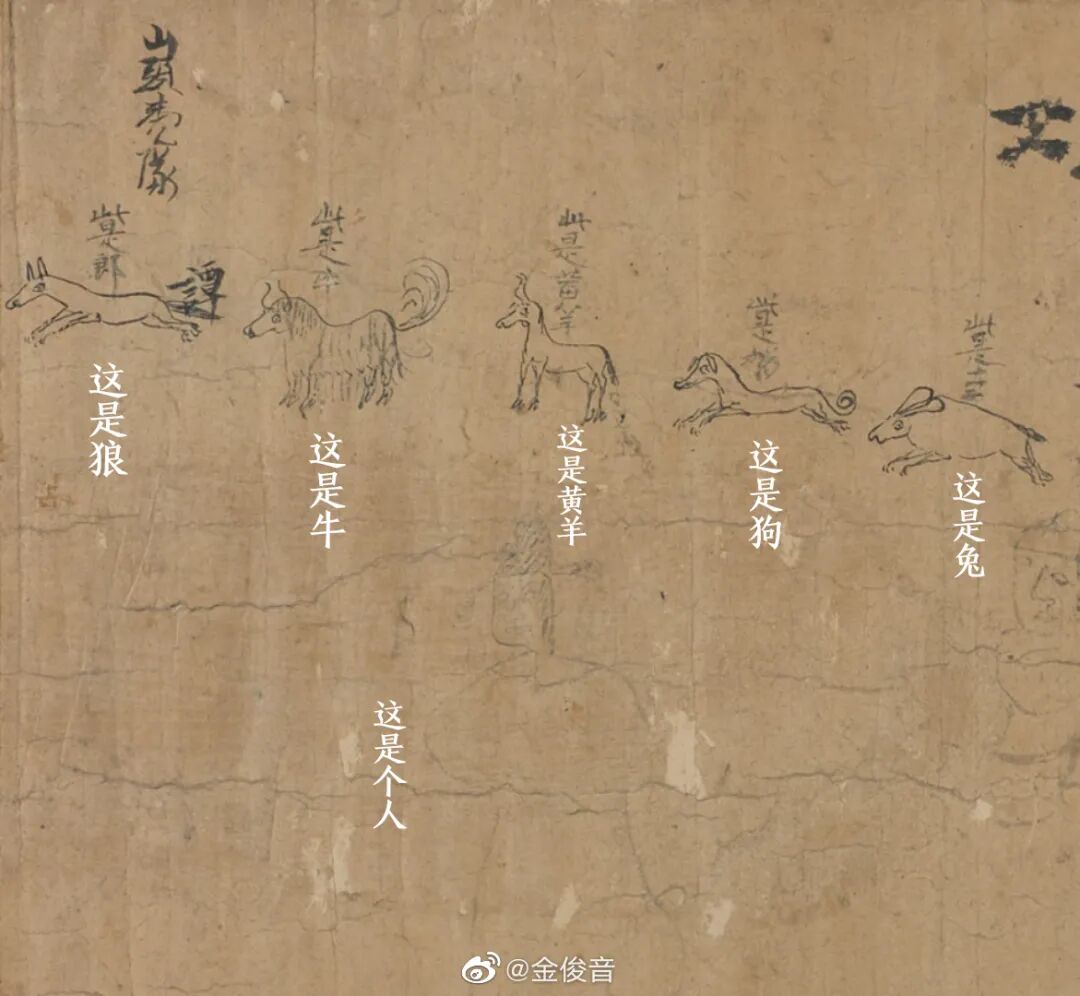 山頭
隊
此是郎
譚
此是牛
此是黄羊
此是狗
此是
这是狼
这是牛
这是黄羊
这是狗
这是兔
这是个人
@金俊音